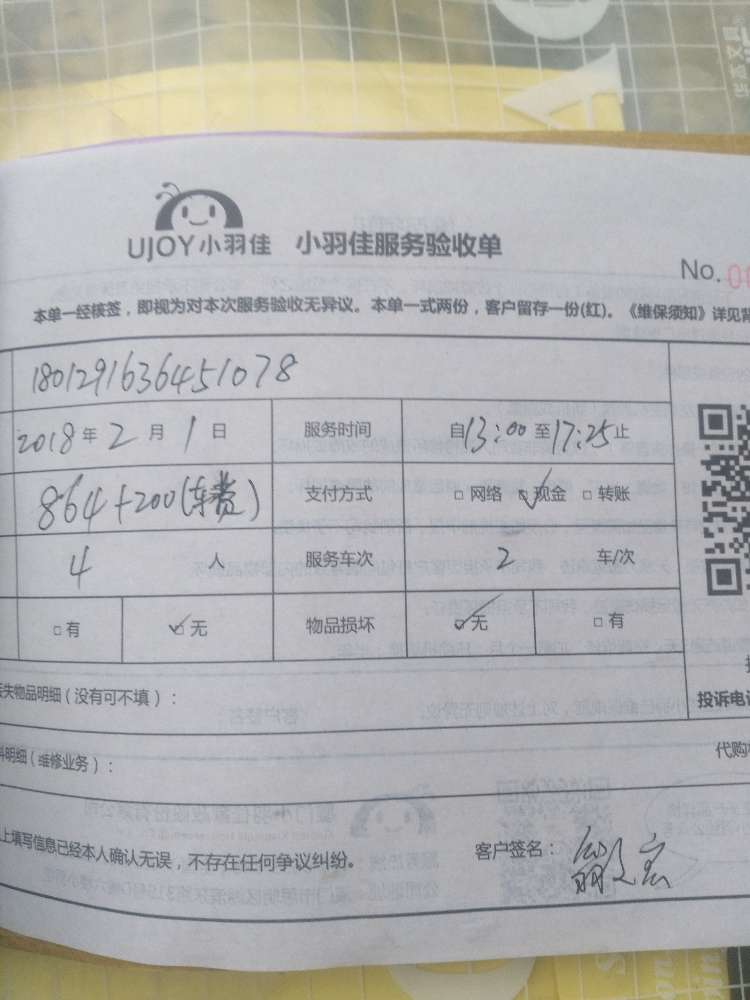 UJOY小羽佳 小羽佳服务验收单
No.
本单一经核签，即视为对本次服务验收无异议。本单一式两份，客户留存一份(红)。《维保须知》详见背
1801291636451078
2018年2月1日 服务时间 自13:00至17:25止
864+200(车费) 支付方式 □网络 ☑现金 □转账
4人 服务车次 2 车/次
□有 ☑无 物品损坏 ☑无 □有
失物品明细（没有可不填）：
投诉电话
料明细（维修业务）：
代购
上填写信息已经本人确认无误，不存在任何争议纠纷。 客户签名：